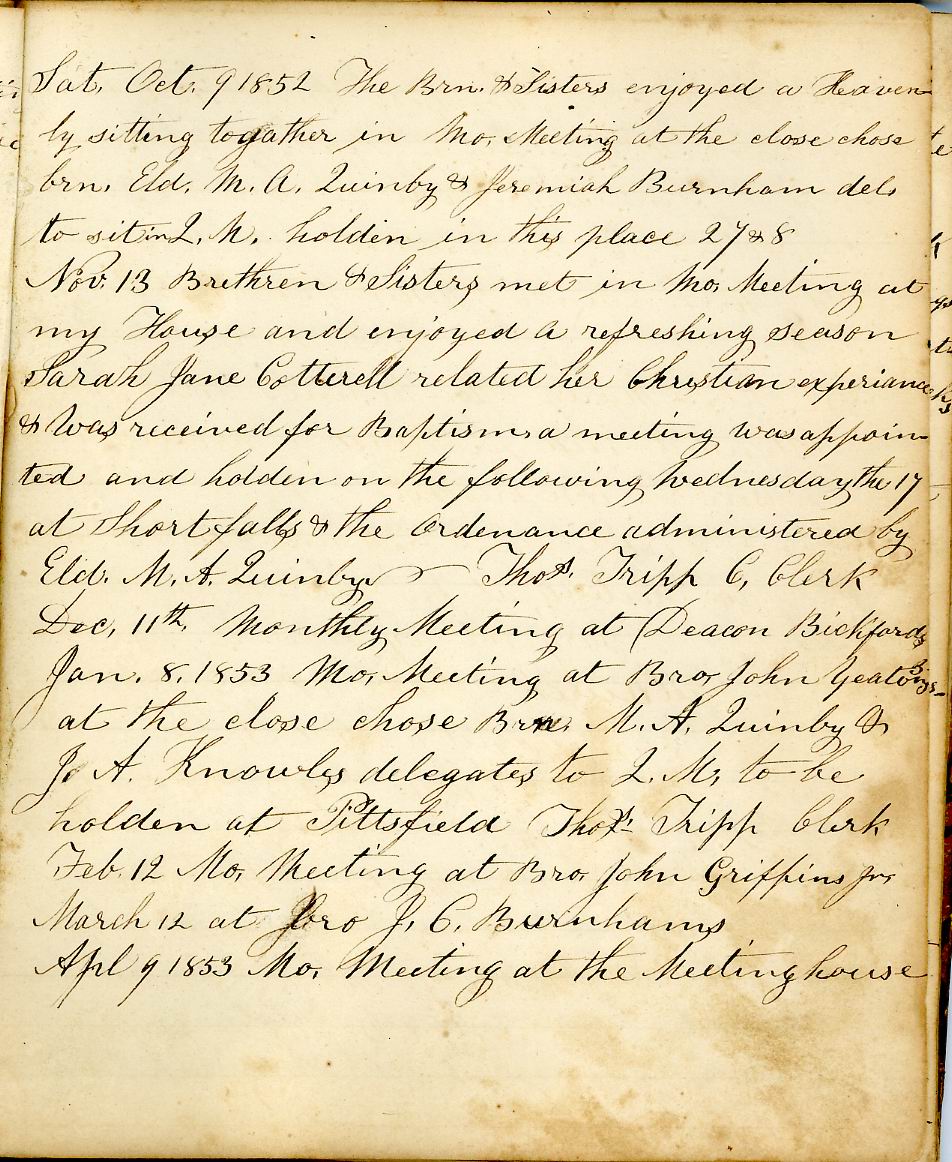 Sat. Oct. 9 1852 The Brn. & Sisters enjoyed a Heaven-
ly sitting togather in Mo. Meeting at the close chose
brn. Eld. M. A. Quinby & Jeremiah Burnham del.
to sit in Q. M. holden in this place 27 & 8
Nov. 13 Brethren & Sisters met in Mo. Meeting at
my House and enjoyed a refreshing season
Sarah Jane Cotterell related her Christian experiance
& Was received for Baptism a meeting was appoin-
ted and holden on the following Wednesday the 17
at Short falls & the Ordenance administered by
Eld. M. A. Quinby Thos. Tripp C. Clerk
Dec. 11th. Monthly Meeting at Deacon Bickfords
Jan. 8. 1853 Mo. Meeting at Bro John Yeatons
at the close chose Brn. M. A. Quinby &
J. A. Knowles delegates to Q. M. to be
holden at Pittsfield Thos. Tripp Clerk
Feb. 12 Mo. Meeting at Bro. John Griffins Jr.
March 12 at Bro J. C. Burnhams
Apl 9 1853 Mo. Meeting at the Meeting house